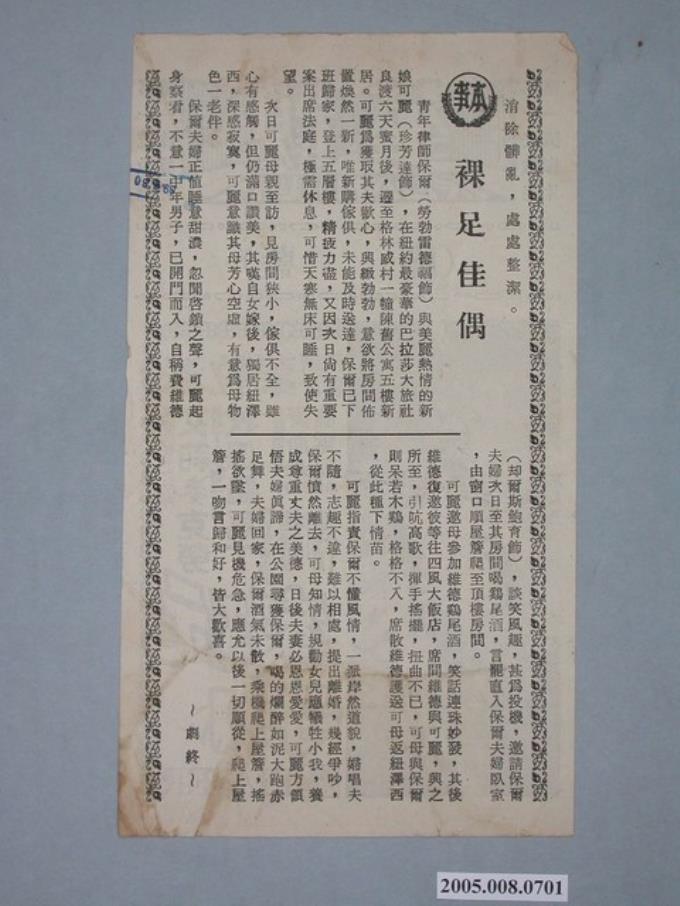 消除髒亂，處處整潔。
本事
裸足佳偶
青年律師保爾（勞勃雷德福飾）與美麗熱情的新
娘可麗（珍芳達飾），在紐約最豪華的巴拉莎大旅社
良渡六天蜜月後，遷至格林威村一幢陳舊公寓五樓新
居。可麗為獲取其夫歡心，興緻勃勃，意欲將房間佈
置煥然一新，唯新購傢俱，未能及時送達，保爾已下
班歸家，登上五層樓，精疲力盡，又因次日尚有重要
案出席法庭，極需休息，可惜天寒無床可睡，致使失
望。
次日可麗母親至訪，見房間狹小，傢俱不全，雖
心有感觸，但仍滿口讚美，其嘆自女嫁後，獨居紐澤
西，深感寂寞，可麗意識其母芳心空虛，有意為母物
色一老伴。
保爾夫婦正值睡意甜濃，忽聞啓鎖之聲，可麗起
身察看，不意一中年男子，已開門而入，自稱費維德
（却爾斯鮑育飾），談笑風趣，甚為投機，邀請保爾
夫婦次日至其房間喝鷄尾酒，言罷直入保爾夫婦臥室
，由窗口順屋簷爬至頂樓房間。
可麗邀母參加維德鷄尾酒，笑話連珠妙發，其後
維德復邀彼等往四風大飯店，席間維德與可麗，興之
所至，引吭高歌，揮手搖擺，扭曲不已，可母與保爾
則呆若木鷄，格格不入，席散維德護送可母返紐澤西
，從此種下情苗。
可麗指責保爾不懂風情，一派岸然道貌，婦唱夫
不隨，志趣不違，難以相處，提出離婚，幾經爭吵，
保爾憤然離去，可母知情，規勸女兒應犧牲小我，養
成尊重丈夫之美德，日後夫妻必恩恩愛愛，可麗方領
悟夫婦真諦，在公園尋獲保爾，喝的爛醉如泥大跑赤
足舞，夫婦回家，保爾酒氣未散，乘機爬上屋簷，搖
搖欲墜，可麗見機危急，應允以後一切順從，爬上屋
簷，一吻言歸和好，皆大歡喜。
～劇終～
2005.008.0701